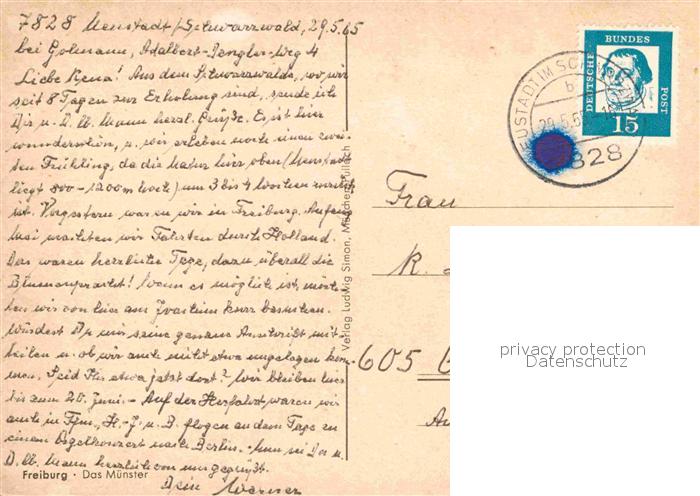 7828 Neustadt/Schwarzwald, 29.5.65
bei Golmann, Adalbert-Zengler-Weg 4
Liebe Rena! Aus dem Schwarzwalde, wo wir
seit 8 Tagen zur Erholung sind, sende ich
Dir u. D. lb. Mann herzl. Grüße. Es ist hier
wunderschön, u. wir erleben noch einen zwei-
ten Frühling, da die Natur hier oben (Neustadt
liegt 800-1200m hoch) um 3 bis 4 Wochen zurück
ist. Vorgestern waren wir in Freiburg. Anfang
Mai machten wir Fahrten durch Holland.
Das waren herrliche Tage, dazu überall die
Blumenpracht! Wenn es möglich ist, möch-
ten wir von hier aus kurz besuchen.
Würdest Du mir seine genaue Anschrift mit-
teilen u. ob wir auch nicht etwa ungelegen kom-
men. Seid Ihr etwa jetzt dort? Wir bleiben hier
bis zum 20. Juni. - Auf der Herfahrt waren wir
auch in H.-J. u. B. flogen an dem Tage zu
einem Orgelkonzert nach Berlin. - Nun sei Du u.
D. lb. Mann herzlich von uns gegrüßt.
Dein Werner
Freiburg · Das Münster
Verlag Ludwig Simon, München-Pullach
DEUTSCHE BUNDES POST
15
NEUSTADT IM SCHWARZWALD
b
29.5.65
7828
Frau
R.
605
privacy protection
Datenschutz